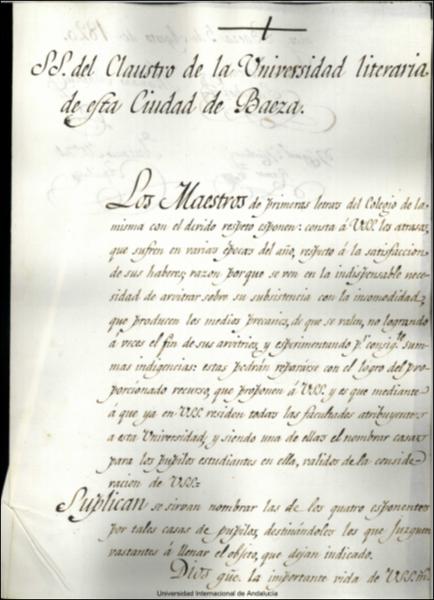 SS. del Claustro de la Universidad literaria
de esta Ciudad de Baeza.
Los Maestros de primeras letras del Colegio de la
misma con el devido respeto esponen: consta á USS. los atrasos,
que sufren en varias épocas del año, respeto á la satisfaccion
de sus haberes, razon porque se ven en la indispensable nece-
sidad de arvitrar sobre su subsistencia con la incomodidad,
que producen los medios precarios, de que se valen, no logrando
á veces el fin de sus arvitrios, y esperimentando pr. consigte. sum-
mas indigencias: estas podrán repararse con el logro del pro-
porcionado recurso, que proponen á USS. y es que mediante
á que ya en USS. residen todas las facultades atribuyentes
a esta Universidad, y siendo una de ellas el nombrar casas
para los pupilos estudiantes en ella, validos de la conside-
racion de USS.=
Suplican se sirvan nombrar las de los quatro esponentes
por tales casas de pupilos, destinándoles los que juzguen
vastantes á llenar el objeto, que dejan indicado.
Dios güe. la importante vida de USS.
Universidad Internacional de Andalucía